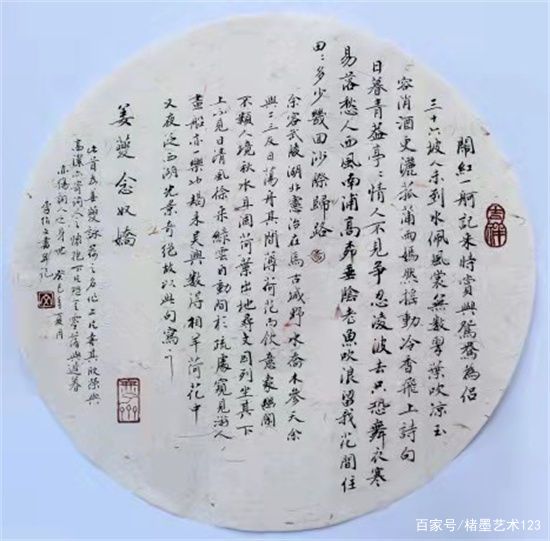 鬧紅一舸記來時賞與鴛鴦為侶
三十六坡人未到水佩風裳無數翠葉吹涼玉
容消酒更灑菰蒲雨嫣然搖動冷香飛上詩句
日暮青蓋亭〻情人不見爭忍凌波去只恐舞衣寒
易落愁人西風南浦高柳垂陰老魚吹浪留我花間住
田〻多少幾回沙際歸路
余客武陵湖北憲治在焉古城野水喬木參天余
與二三友日蕩舟其間薄荷花而飲意象幽閒
不類人境秋水且涸荷葉出地尋丈因列坐其下
上不見日清風徐來綠雲自動間於疏處窺見游人
畫船亦樂也朅來吳興數得相羊荷花中
又夜泛西湖光景奇絕故以此句寫之
姜夔念奴嬌
此首為姜夔詠荷之名作上片其欣榮與
高潔亦寄詞人之懷抱下片零落與遲暮
亦傷詞人之身世 癸巳年夏月
書并記
吉祥
百家号/楮墨艺术123